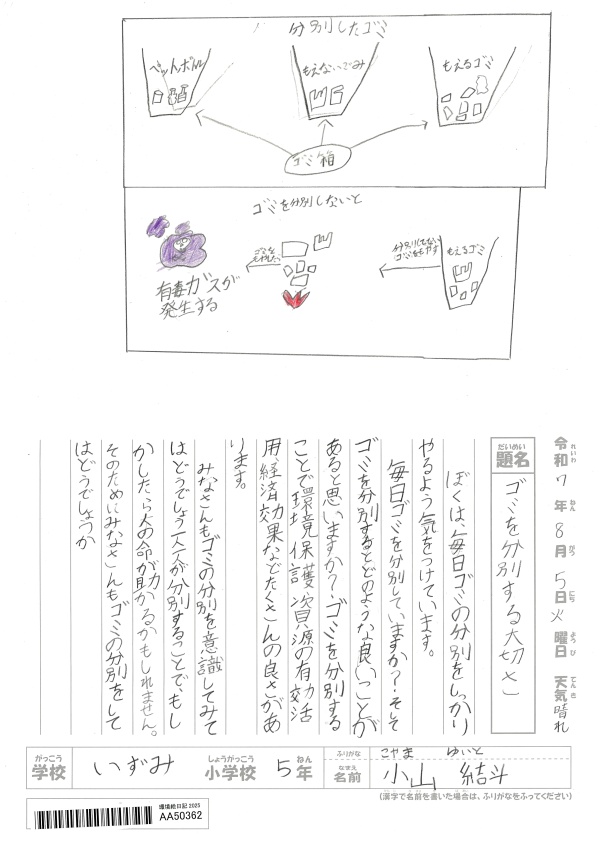 分別したゴミ
ペットボトル
もえないごみ
もえるゴミ
ゴミ箱
ゴミを分別しないと
もえるゴミ
分別してない
ゴミをもやす
ゴミを
もやしたら
有毒ガスが
発生する
令和7年8月5日火曜日 天気晴れ
れいわ ねん がつ にち ようび てんき
だいめい
題名
ゴミを分別する大切さ
ぼくは、毎日ゴミの分別をしっかり
やるよう気をつけています。
毎日ゴミを分別していますか?そして
ゴミを分別するとどのような良いことが
あると思いますか?ゴミを分別する
ことで環境保護、資源の有効活
用、経済効果などたくさんの良さがあ
ります。
みなさんもゴミの分別を意識してみて
はどうでしょう一人一人が分別することで、もし
かしたら人の命が助かるかもしれません。
そのためにみなさんもゴミの分別をして
はどうでしょうか
がっこう しょうがっこう ねん
学校 いずみ 小学校 5年
ふりがな こやま ゆいと
なまえ
名前 小山 結斗
(漢字で名前を書いた場合は、ふりがなをふってください)
環境絵日記2025
AA50362